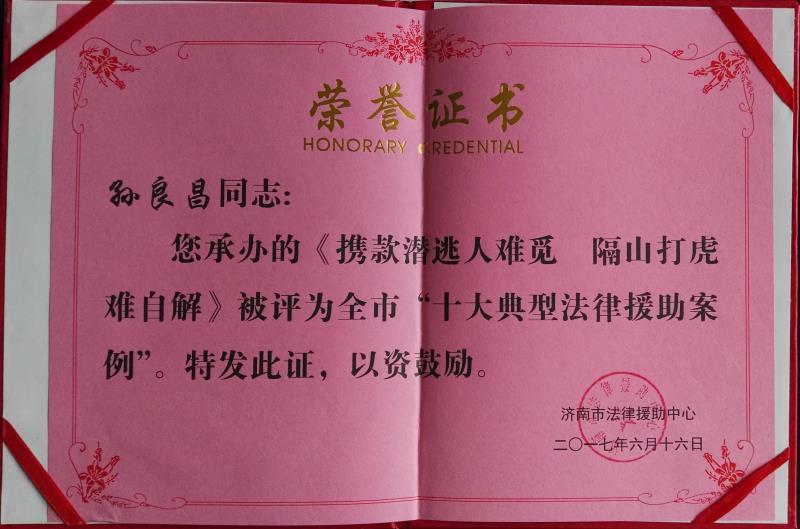 荣誉证书
HONORARY CREDENTIAL
孙良昌同志：
您承办的《携款潜逃人难觅 隔山打虎
难自解》被评为全市“十大典型法律援助案
例”。特发此证，以资鼓励。
济南市法律援助中心
二〇一七年六月十六日